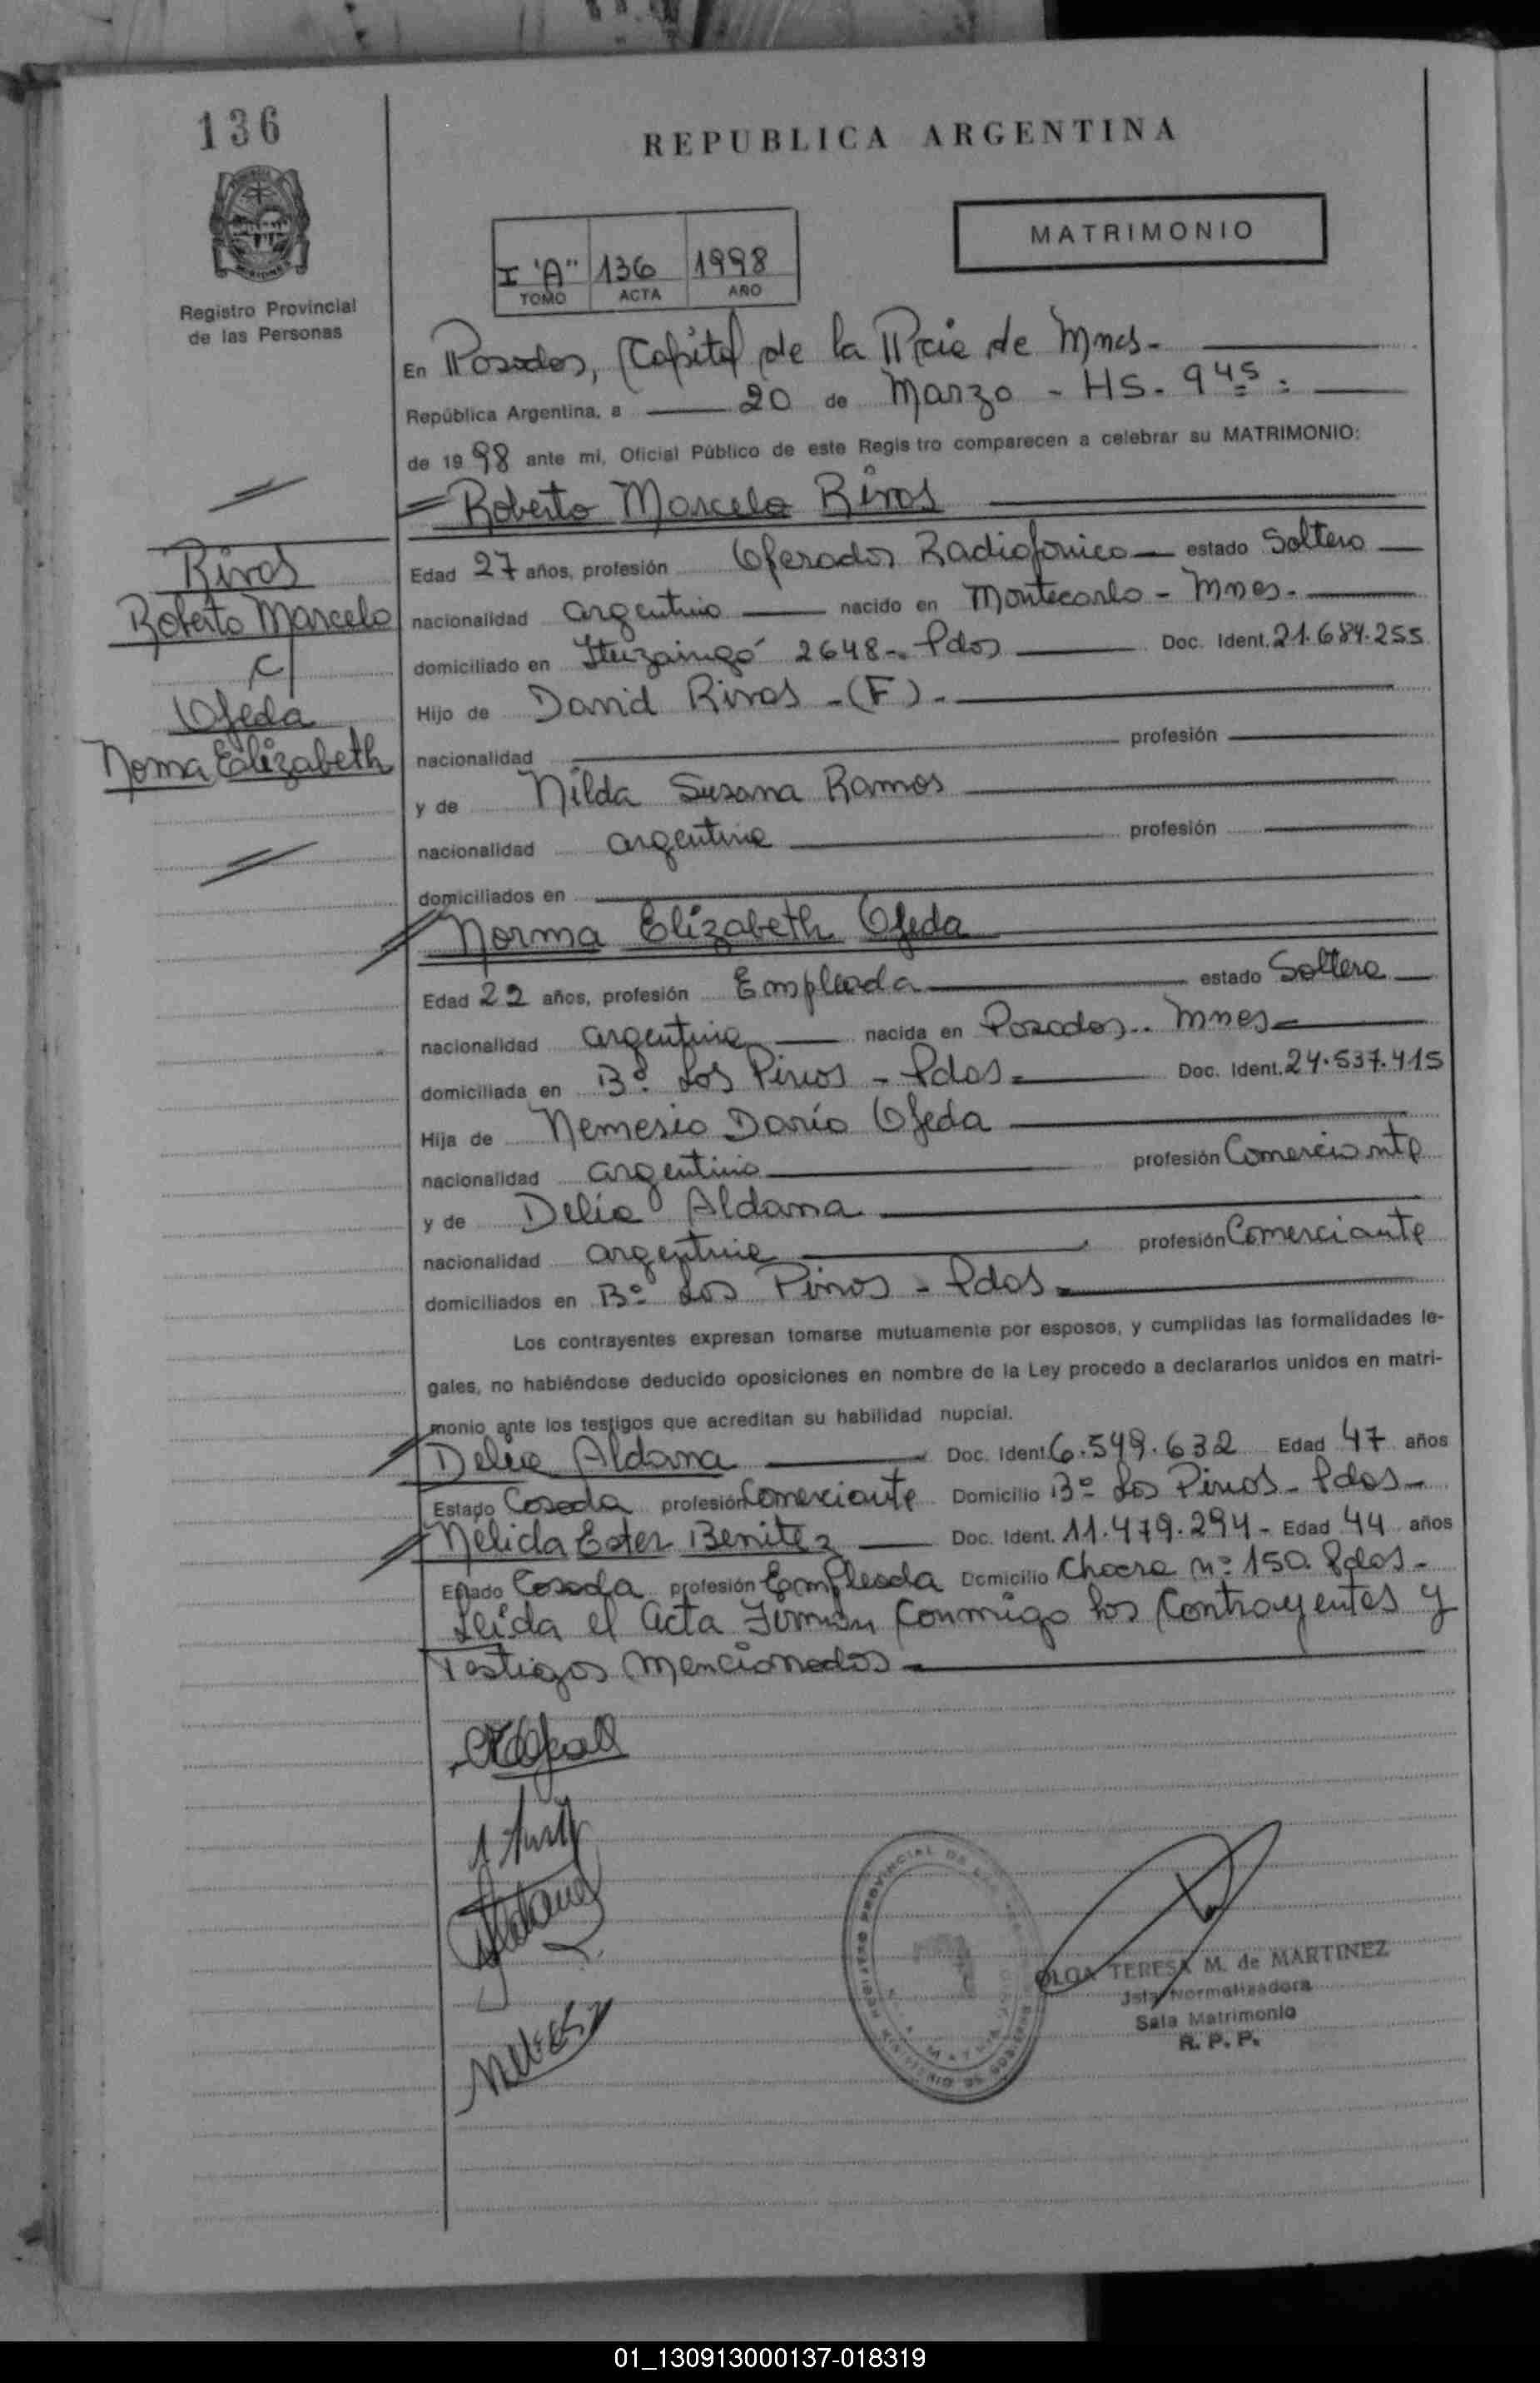 136
REPUBLICA ARGENTINA
MATRIMONIO
I "A" 136 1998
TOMO ACTA AÑO
Registro Provincial
de las Personas
En Posadas, Capital de la Pcia de Mnes-
República Argentina, a 20 de Marzo - HS. 9 45 =
de 1998 ante mi, Oficial Público de este Registro comparecen a celebrar su MATRIMONIO:
Roberto Marcelo Rivas
Edad 27 años, profesión Operador Radiofonico estado Soltero
nacionalidad argentino nacido en Montecarlo - Mnes-
domiciliado en Ituzaingó 2648 - Pdas Doc. Ident. 21.684.255
Hijo de David Rivas - (F) -
nacionalidad profesión
y de Nilda Susana Ramos
nacionalidad argentina profesión
domiciliados en
Rivas
Roberto Marcelo
c/
Ojeda
Norma Elizabeth
Norma Elizabeth Ojeda
Edad 22 años, profesión Empleada estado Soltera
nacionalidad argentina nacida en Posadas - Mnes-
domiciliada en B° Los Pinos - Pdas- Doc. Ident. 24.537.415
Hija de Nemesio Darío Ojeda
nacionalidad argentino profesión Comerciante
y de Delia Aldana
nacionalidad argentina profesión Comerciante
domiciliados en B° Los Pinos - Pdas-
Los contrayentes expresan tomarse mutuamente por esposos, y cumplidas las formalidades le-
gales, no habiéndose deducido oposiciones en nombre de la Ley procedo a declararlos unidos en matri-
monio ante los testigos que acreditan su habilidad nupcial.
Delia Aldana Doc. Ident. 6.549.632 Edad 47 años
Estado Casada profesión Comerciante Domicilio B° Los Pinos - Pdas-
Nelida Ester Benitez Doc. Ident. 11.479.294- Edad 44 años
Estado Casada profesión Empleada Domicilio Chacra n° 150. Pdas-
Leida el Acta Firman Conmigo los Contrayentes y
Testigos mencionados-
OLGA TERESA M. de MARTINEZ
Jefa Normalizadora
Sala Matrimonio
R. P. P.
01_130913000137-018319